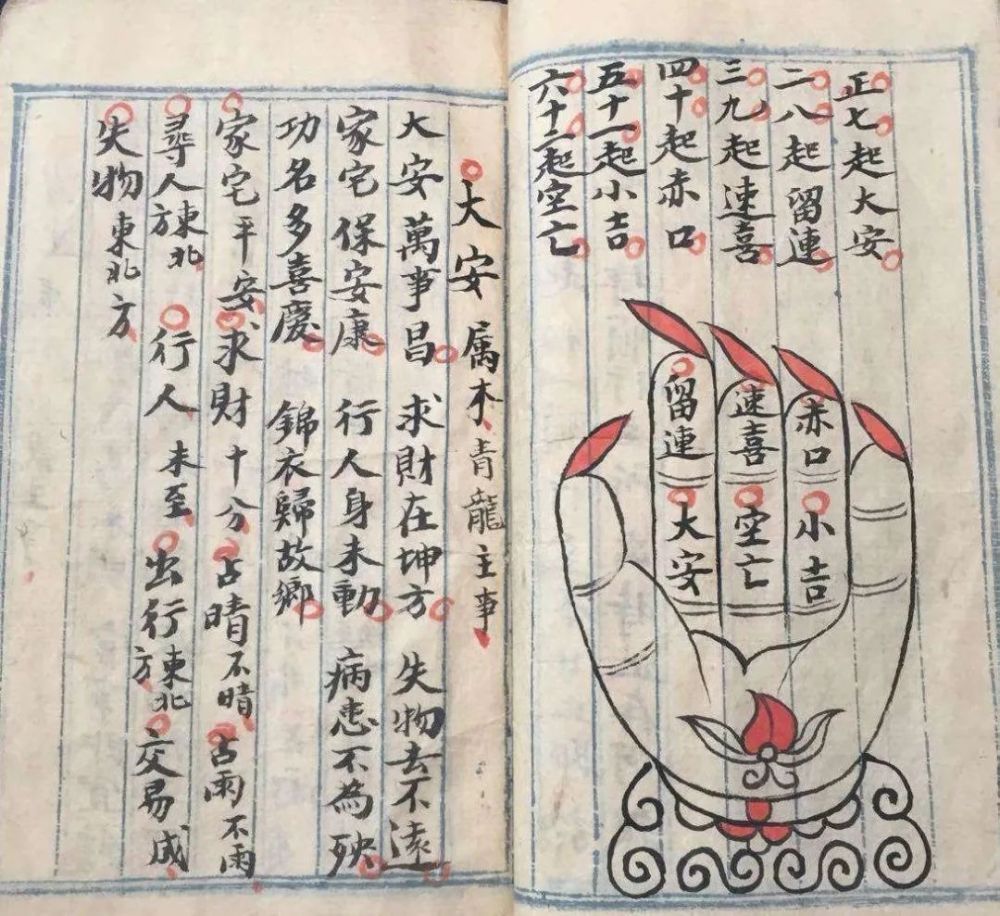 正七起大安
二八起留連
三九起速喜
四十起赤口
五十一起小吉
六十二起空亡
赤口
小吉
速喜
空亡
留連
大安
大安 属木青龍主事
大安萬事昌 求財在坤方 失物去不遠
家宅保安康 行人身未動 病患不為殃
功名多喜慶 錦衣歸故鄉
家宅平安 求財十分 占晴不晴 占雨不雨
尋人東北方 行人未至 出行東北方 交易成
失物東北方